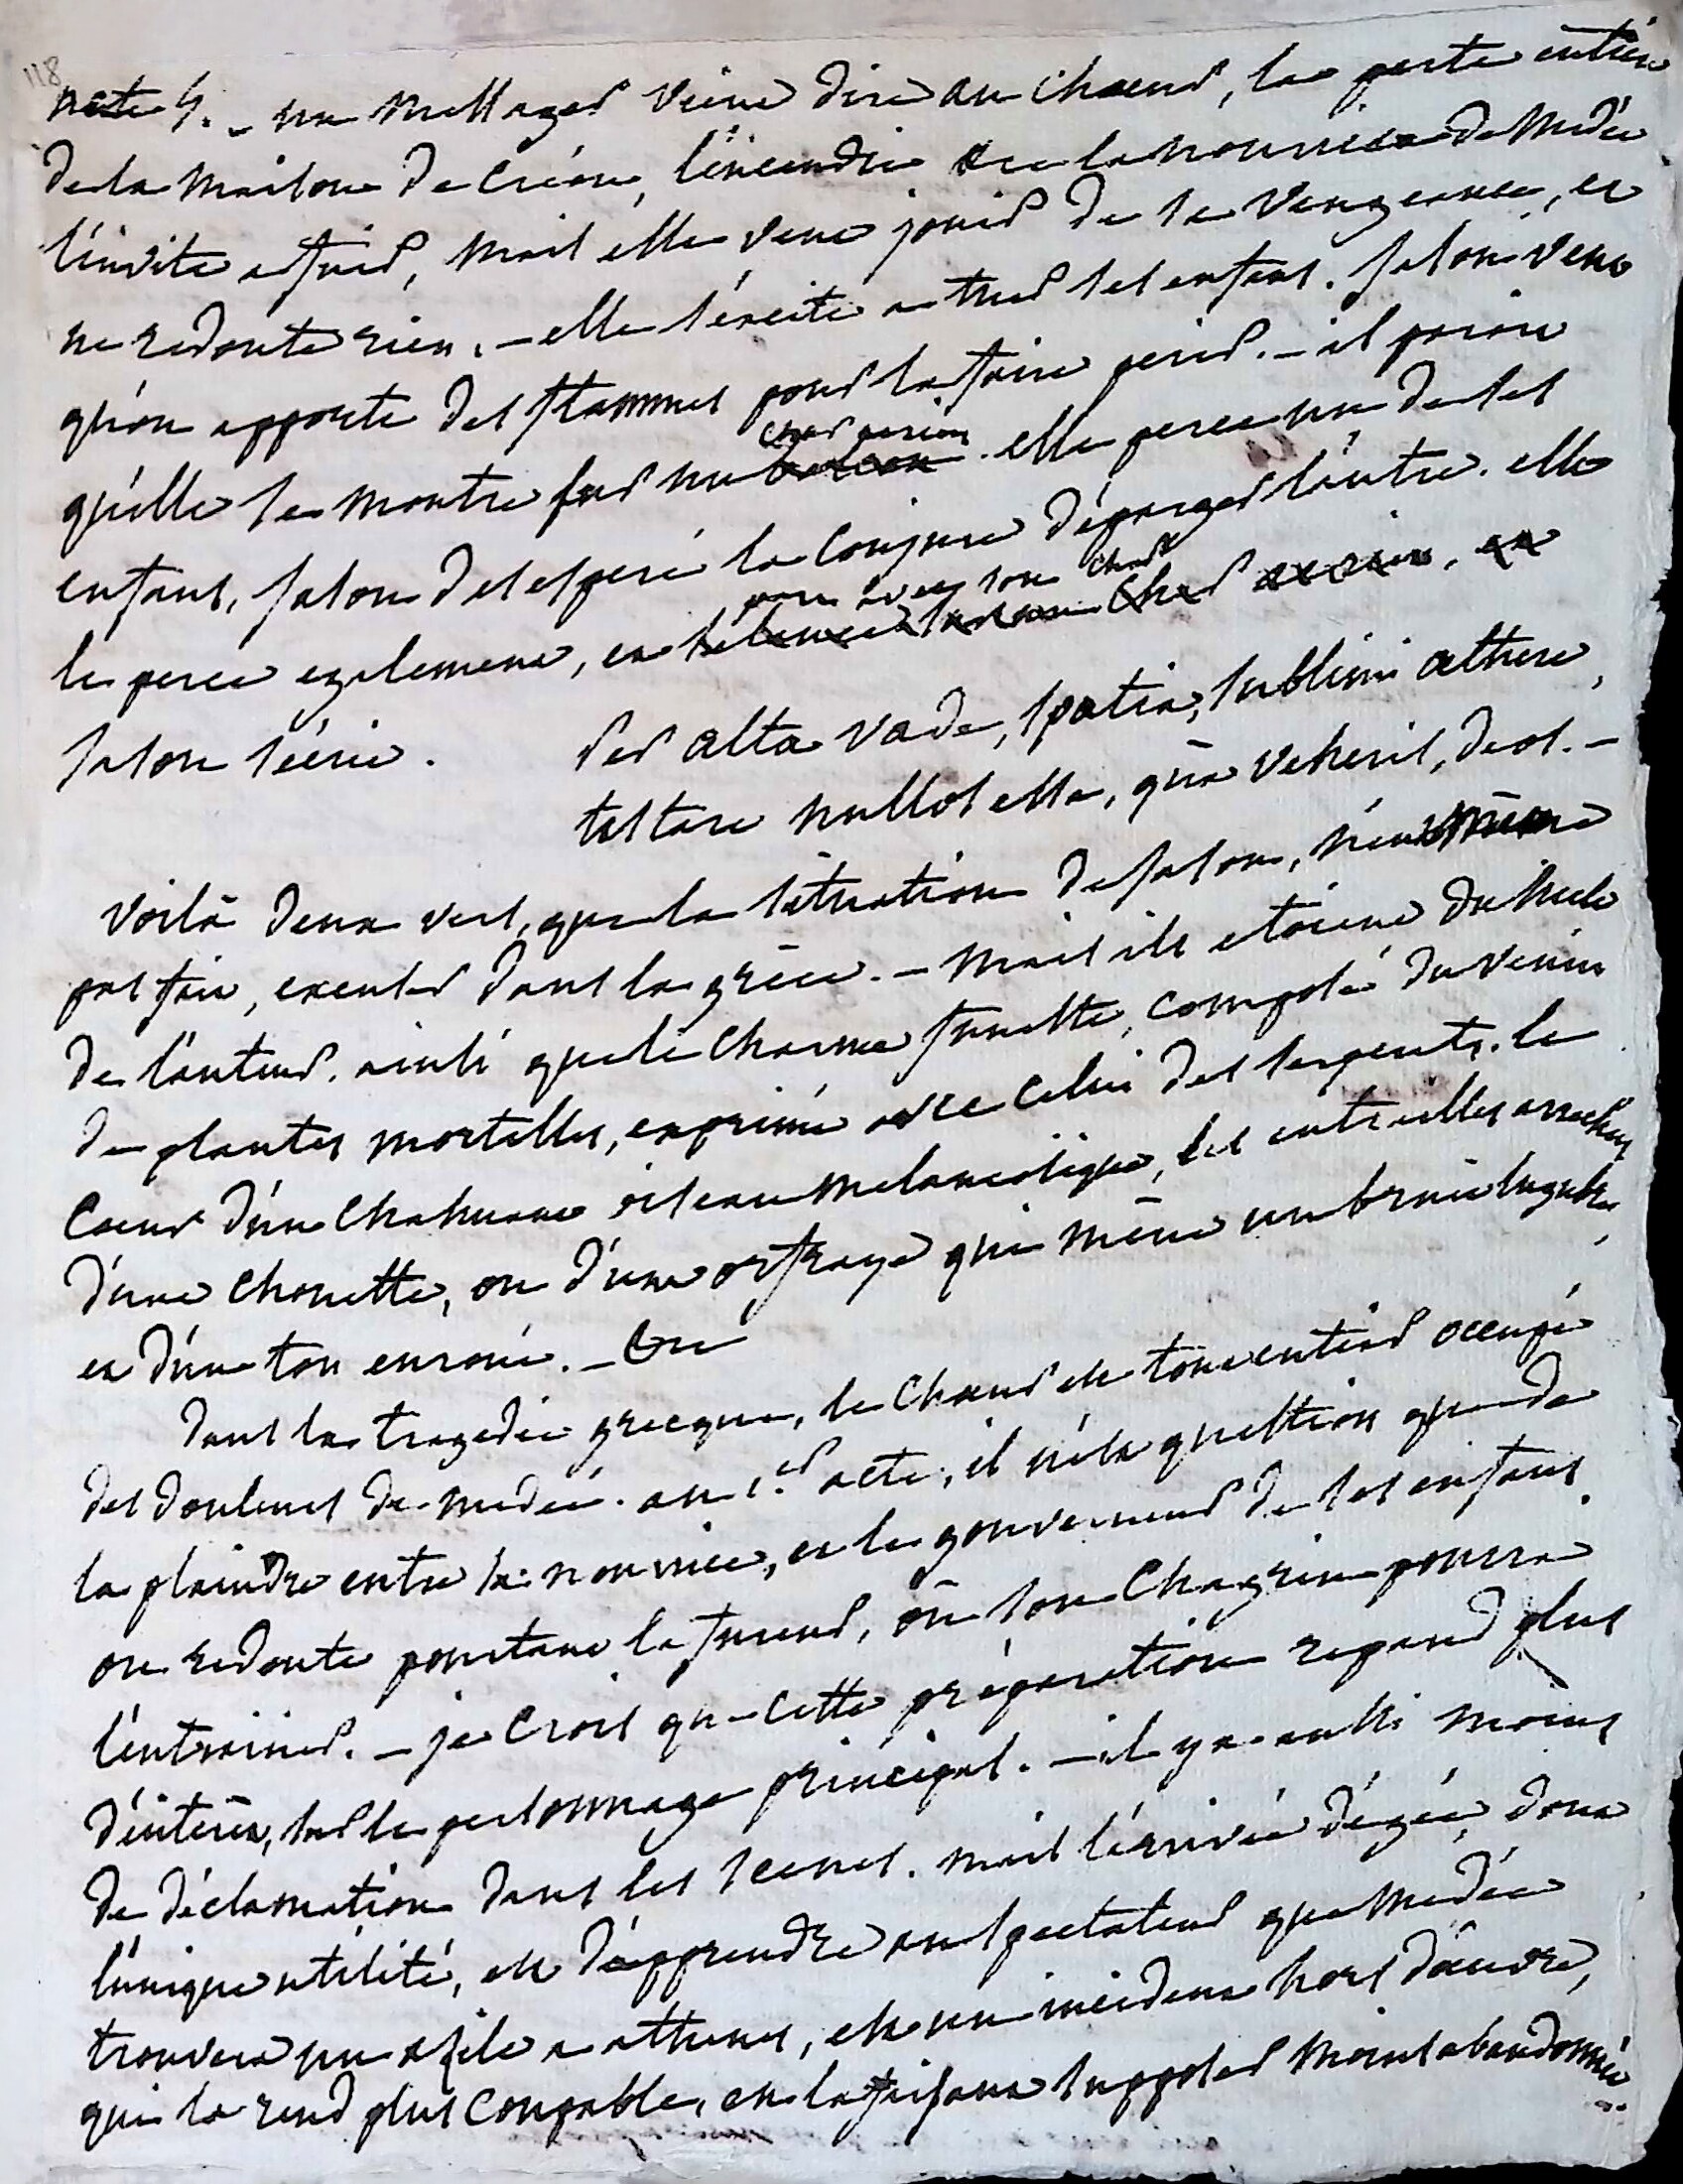 118
acte 5. - un messager vient dire au choeur, la perte entière
de la maison de Créon, l'incendie &c. la nourrice de Médée
l'invite a fuir, mais elle veut jouir de sa vengeance, et
ne redoute rien. - elle s'éxcite a tuer ses enfans. Jason veut
qu'on apporte des flammes pour la faire perir. - il paroit
qu'elle se montre sur un balcon char aerien. elle perce un de ses
enfans, Jason desesperé la conjure d'épargner l'autre. elle
le perce egalement, et s'élance dans un char aerien, et part avec son char
Jason s'écrie. Per alta vade, spatia, sublimi æthere,
testare nullos esse, quà veheris, deos. -
Voilà deux vers, que la situation de Jason, n'eut même
pas fait, excuser dans la grèce. - mais ils etoient du siecle
de l'auteur. ainsi que le charme funeste, composé du venin
de plantes mortelles, exprimé avec celui des serpents. le
coeur d'un chahuant oiseau melancolique, les entrailles arrachées
d'une chouette, ou d'une orfraye qui mène un bruit lugubre,
et d'un ton enroué. - &c
Dans la tragedie grecque, le choeur est tout entier occupé
des douleurs de medée. au 1.er acte, il n'est question que de
la plaindre entre sa nourrice, et le gouverneur de ses enfans
on redoute pourtant la fureur, où son chagrin pourra
l'entrainer. - je crois que cette préparation repand plus
d'intérêt, sur le personnage principal. - il y a aussi moins
de déclamation dans les scenes. mais l'arrivée d'égée, dont
l'unique utilité, est d'apprendre au spectateur que Medée
trouvera un asile a athenes, est un incident hors d'œuvre,
qui la rend plus coupable, en la faisant supposer moins abandonnée.